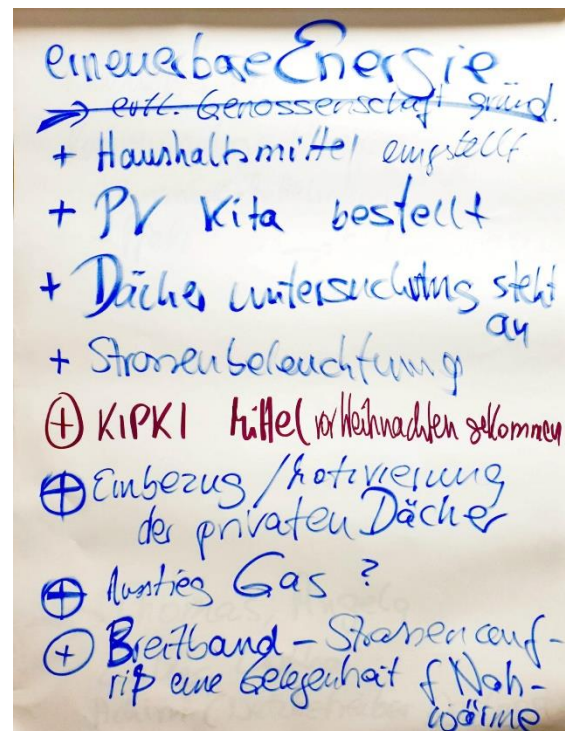 erneuerbare Energie
→ evtl. Genossenschaft gründ.
+ Haushaltsmittel eingestellt
+ PV Kita bestellt
+ Dächer untersuchung steht
an
+ Strassenbeleuchtung
⊕ KIPKI Mittel vor Weihnachten gekommen
⊕ Einbezug / Motivierung
der privaten Dächer
⊕ Ausstieg Gas ?
⊕ Breitband - Strassenauf-
riß eine Gelegenheit f Nah-
wärme